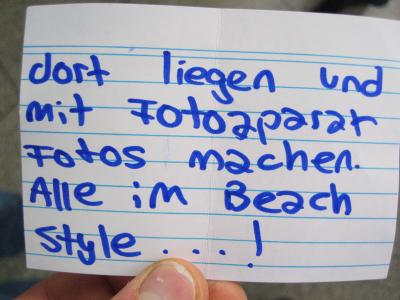 dort liegen und
mit Fotoaparat
Fotos machen.
Alle im Beach
Style....!